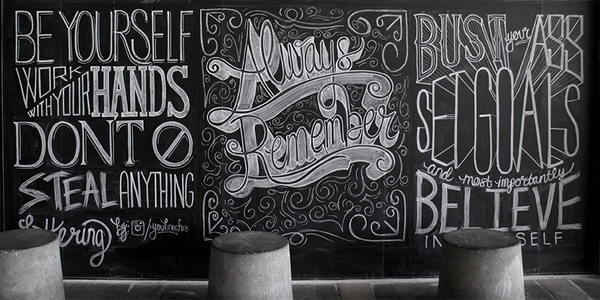 BE YOURSELF
WORK
WITH YOUR HANDS
DONT
STEAL ANYTHING
lettering by:
Always
Remember
BUST your ASS
SET GOALS
and most importantly
BELIEVE
IN YOURSELF